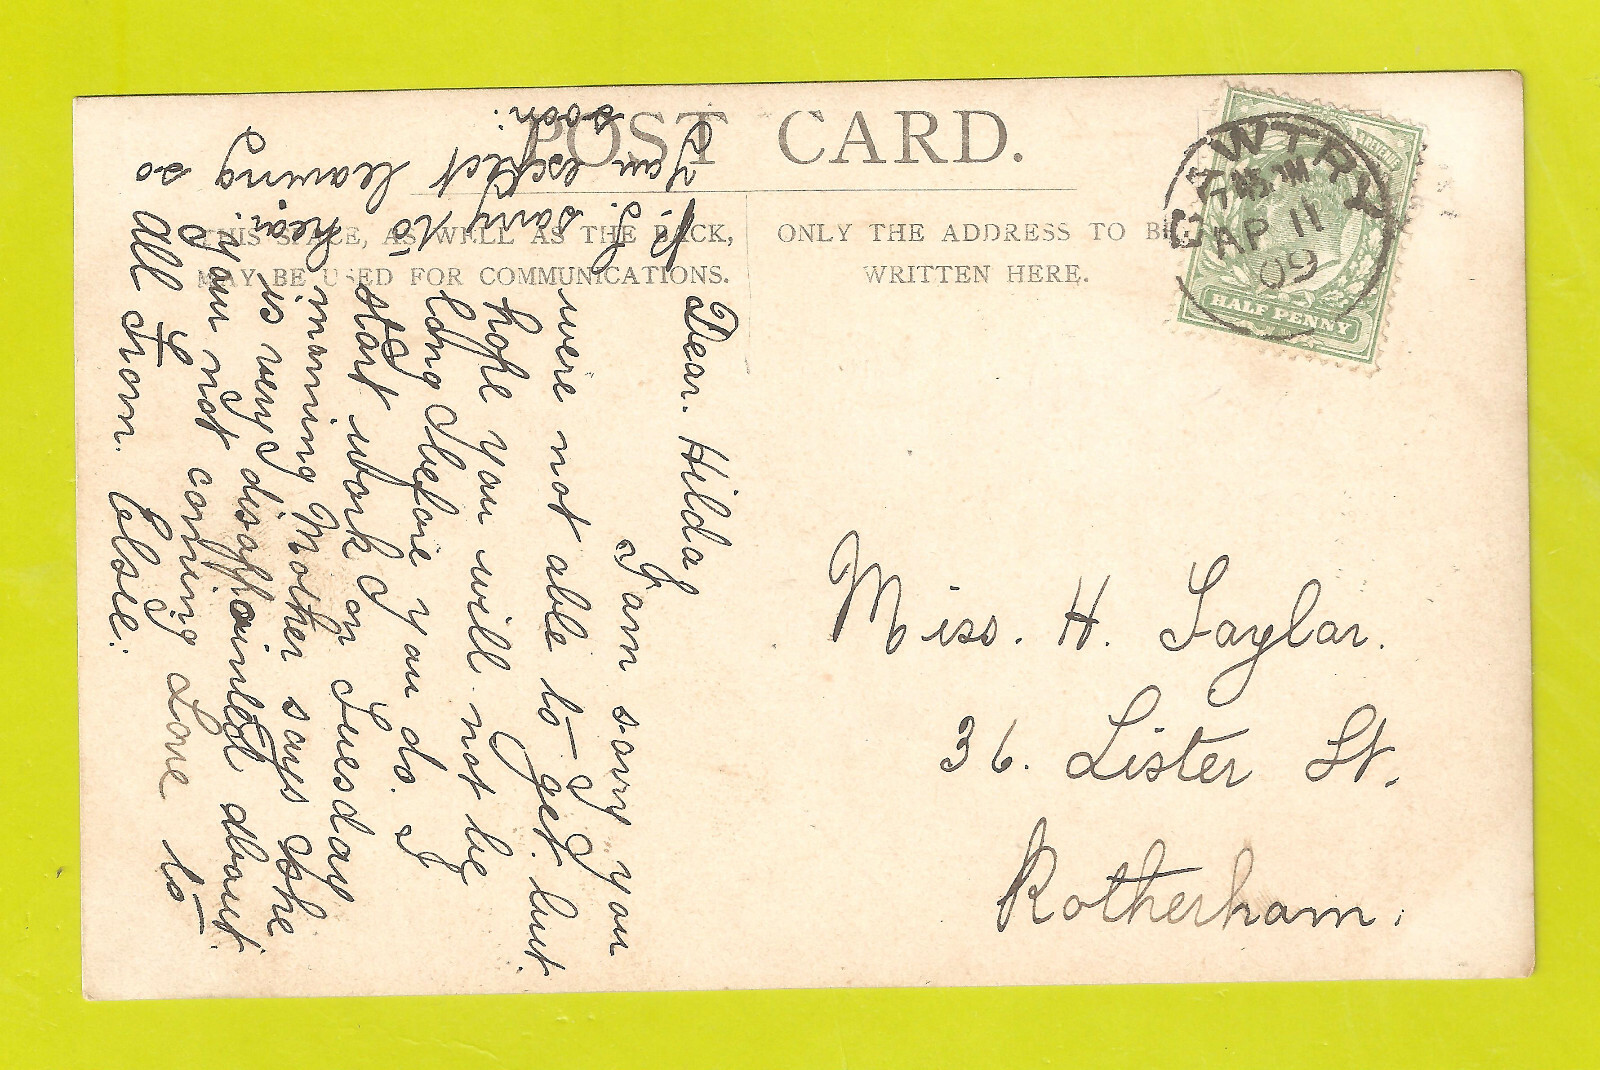 POST CARD.
THIS SPACE, AS WELL AS THE BACK,
MAY BE USED FOR COMMUNICATIONS.
ONLY THE ADDRESS TO BE
WRITTEN HERE.
BAWTRY
7.45 PM
AP 11
09
HALF PENNY
Miss. H. Taylor.
36. Lister St.
Rotherham.
Dear. Hilda
I am sorry you
were not able to get. but
I hope you will not be
long before you do. I
start work on Tuesday
morning Mother says she
is very disappointed about
you not coming Love to
All From. Elsie.
P.S. sorry to hear you
I am expect leaving so
soon.